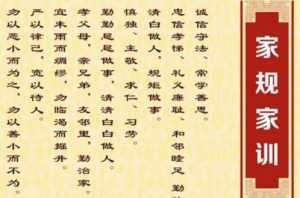 家规家训
诚信守法、常学善思。
忠信孝悌、礼义廉耻、和邻睦足勤
清白做人，规矩做事。
慎独、主敬、求仁、习劳。
勤勤恳恳做事，清清白白做人。
孝父母，亲兄弟，友邻里，勤治家。
宜未雨而绸缪，勿临渴而掘井。
严以律己，宽以待人。
勿以恶小而为之，勿以善小而不为。